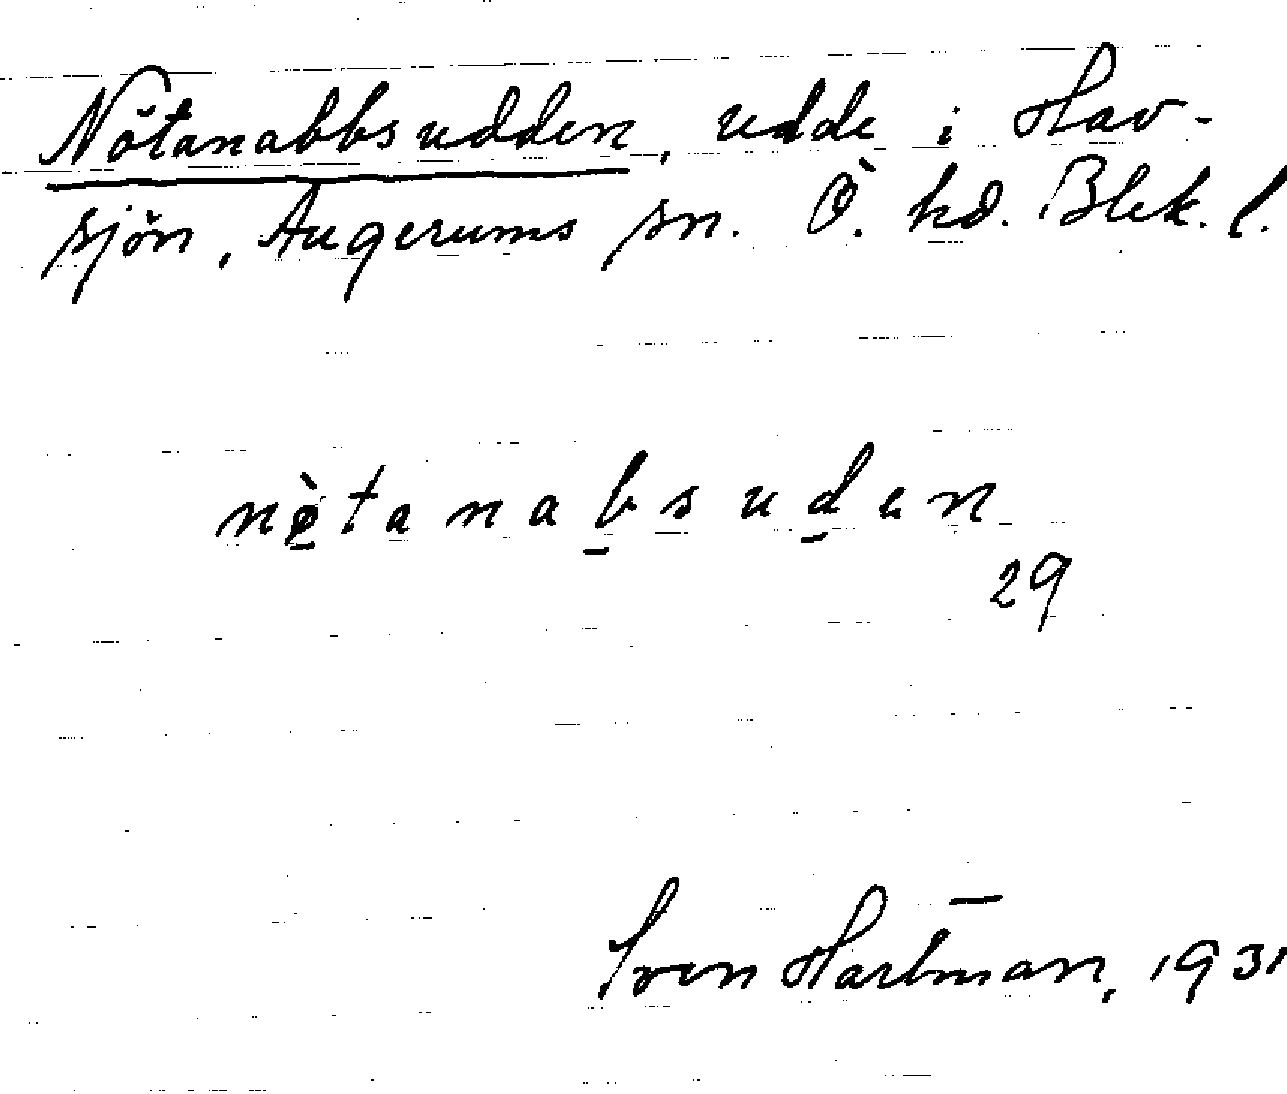 Nötanabbsudden, udde i Hav-
sjön, Augerums sn. Ö. hd. Blek. l.
nø̀tanabsuden
29
Sven Hartman, 1931